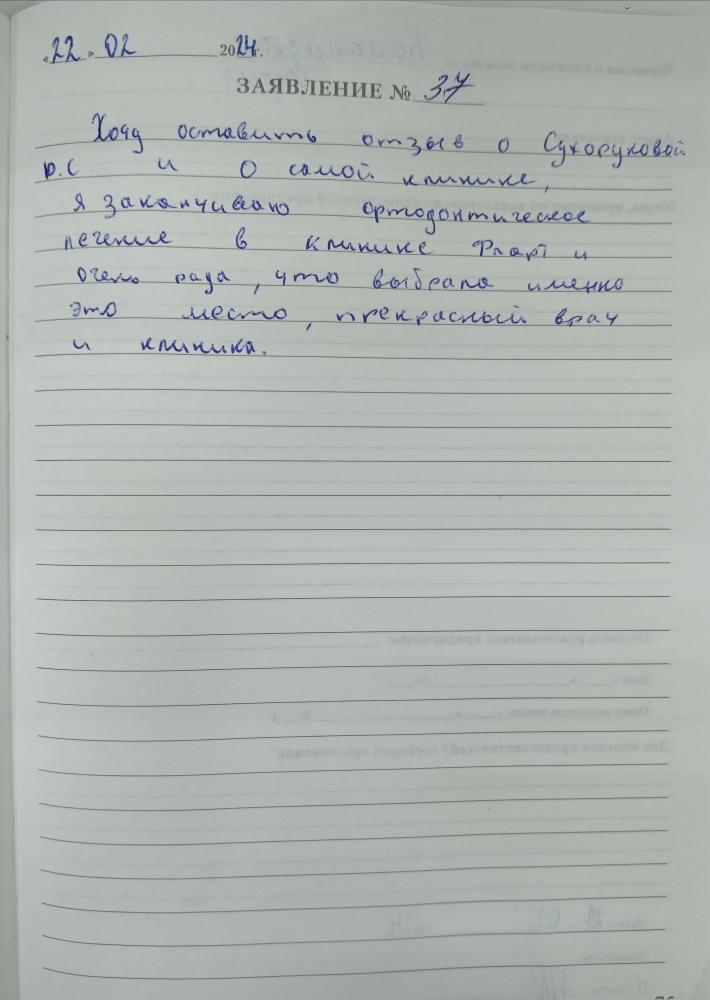 «22» 02 2024г.
ЗАЯВЛЕНИЕ № 37
Хочу оставить отзыв о Сухоруковой
Ю.С и о самой клинике,
я заканчиваю ортодонтическое
лечение в клинике Фларт и
очень рада, что выбрала именно
это место, прекрасный врач
и клиника.